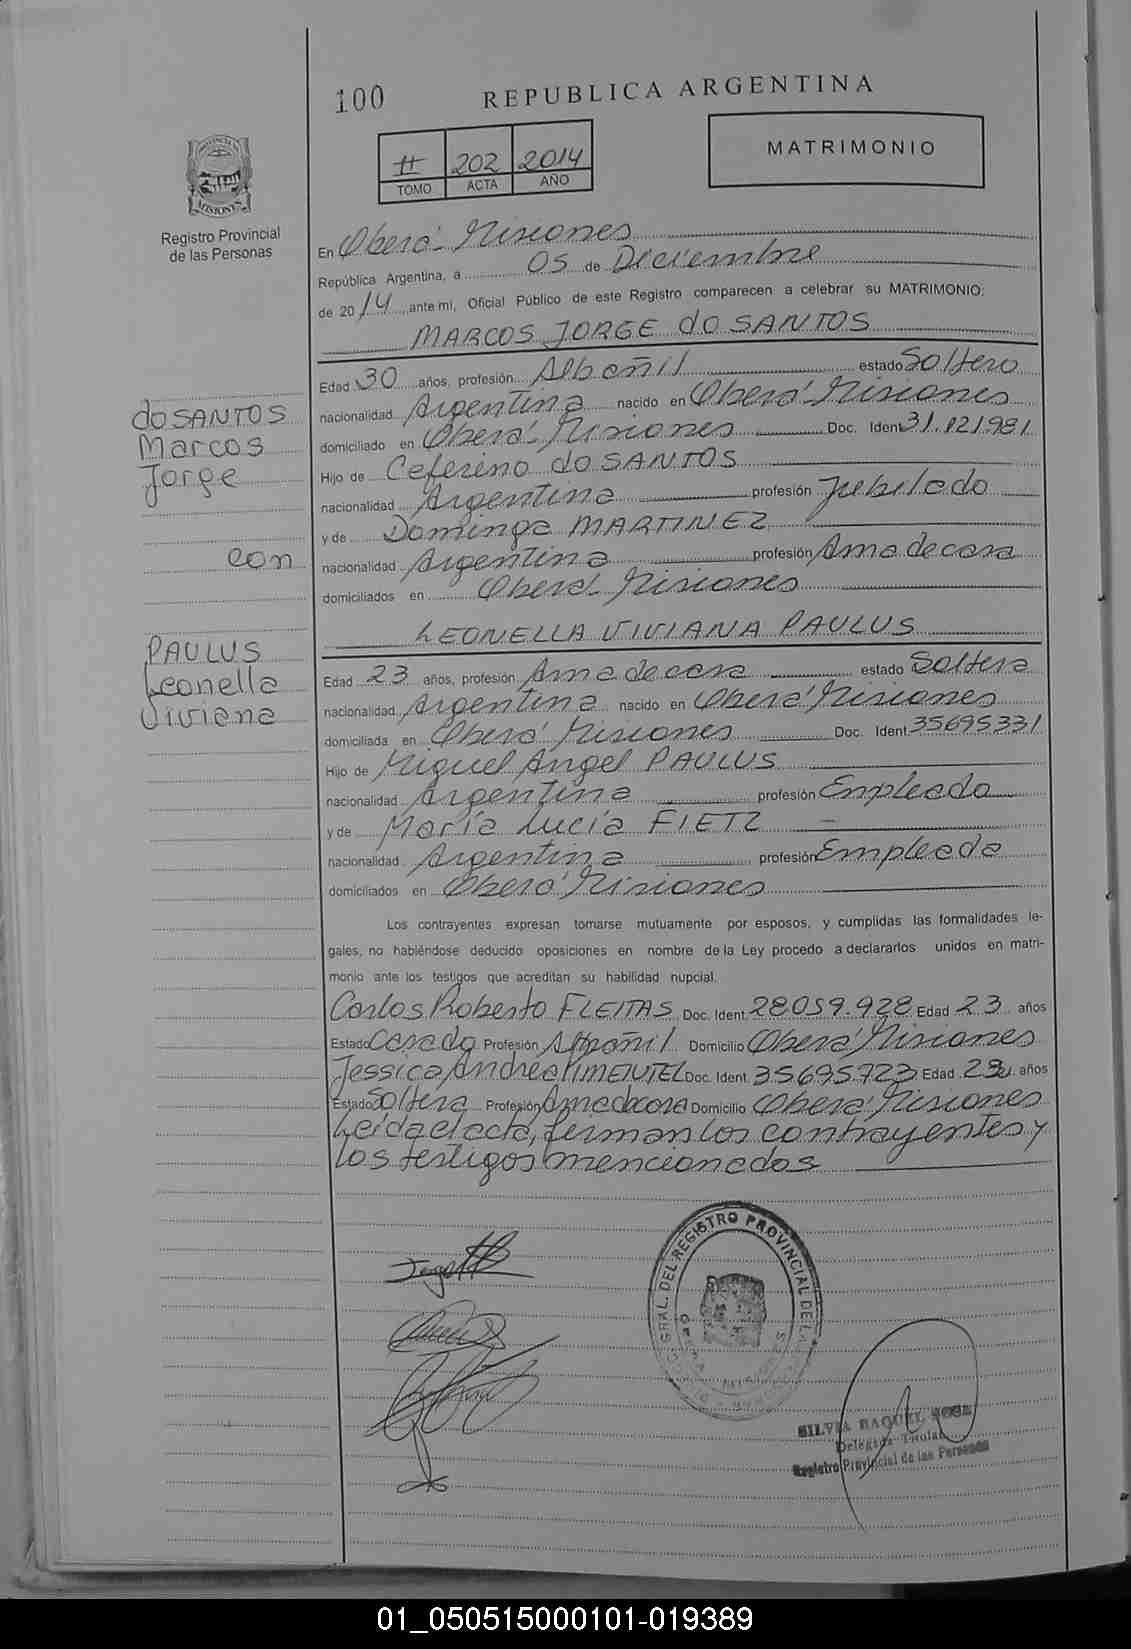 100 REPUBLICA ARGENTINA
MATRIMONIO
II 202 2014
TOMO ACTA AÑO
PROVINCIA DE
MISIONES
Registro Provincial
de las Personas
En Oberá - Misiones
República Argentina, a 05 de Diciembre
de 2014 ante mi, Oficial Público de este Registro comparecen a celebrar su MATRIMONIO:
MARCOS JORGE do SANTOS
Edad 30 años, profesión Albañil estado Soltero
nacionalidad Argentina nacido en Oberá - Misiones
domiciliado en Oberá - Misiones Doc. Iden 31.121.981
Hijo de Ceferino do SANTOS
nacionalidad Argentina profesión Jubilado
y de Dominga MARTINEZ
nacionalidad Argentina profesión Ama de casa
domiciliados en Oberá Misiones
LEONELLA VIVIANA PAULUS
Edad 23 años, profesión Ama de casa estado Soltera
nacionalidad Argentina nacido en Oberá Misiones
domiciliada en Oberá Misiones Doc. Ident. 35695331
Hijo de Miguel Angel PAULUS
nacionalidad Argentina profesión Empleado
y de María Lucía FIETZ
nacionalidad Argentina profesión Empleada
domiciliados en Oberá Misiones
do SANTOS
Marcos
Jorge
con
PAULUS
Leonella
Viviana
Los contrayentes expresan tomarse mutuamente por esposos, y cumplidas las formalidades le-
gales, no habiéndose deducido oposiciones en nombre de la Ley procedo a declararlos unidos en matri-
monio ante los testigos que acreditan su habilidad nupcial.
Carlos Roberto FLEITAS Doc. Ident. 28.059.928 Edad 23 años
Estado Casado Profesión Albañil Domicilio Oberá Misiones
Jessica Andrea PIMENTEL Doc. Ident. 35695723 Edad 23 años
Estado Soltera Profesión Ama de casa Domicilio Oberá Misiones
Leída el acta, firman los contrayentes y
los testigos mencionados
GRAL. DEL REGISTRO PROVINCIAL DE LAS
SILVIA RAQUEL SOSA
Delegada Titular
Registro Provincial de las Personas
01_050515000101-019389